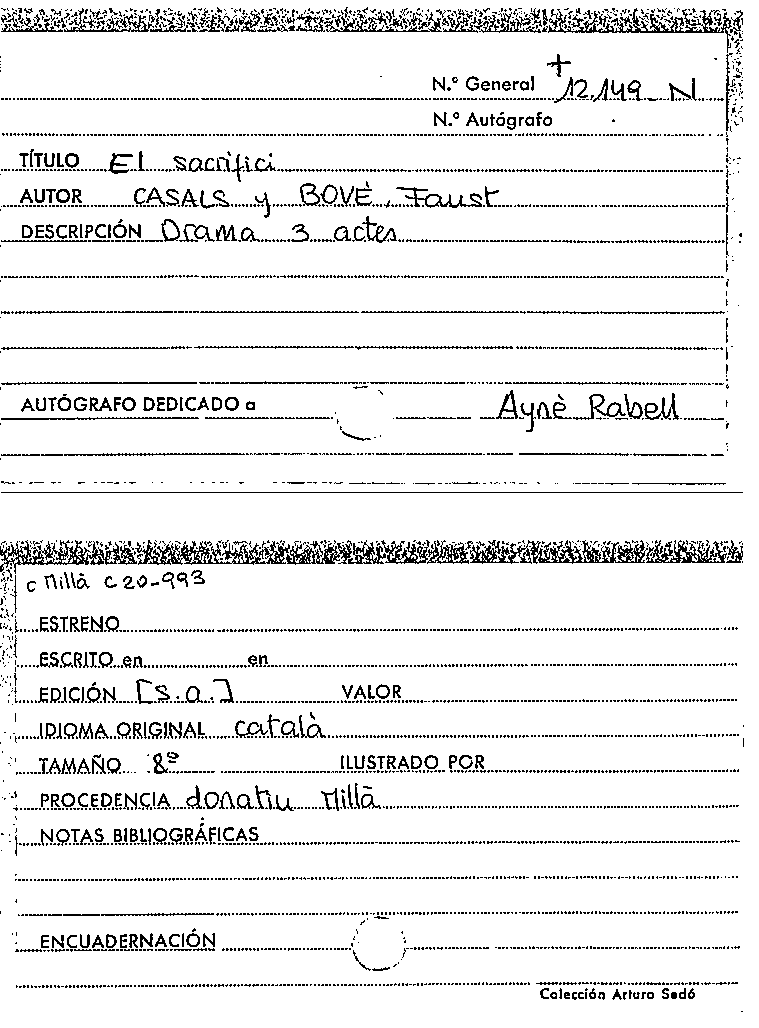 N.º General + 12.149 N
N.º Autógrafo
TÍTULO El sacrifici
AUTOR CASALS y BOVÈ, Faust
DESCRIPCIÓN Drama 3 actes
AUTÓGRAFO DEDICADO a Aynè Rabell
c Millà C20-993
ESTRENO
ESCRITO en en
EDICIÓN [s.a.] VALOR
IDIOMA ORIGINAL català
TAMAÑO 8º ILUSTRADO POR
PROCEDENCIA donatiu Millà
NOTAS BIBLIOGRÁFICAS
ENCUADERNACIÓN
Colección Arturo Sedó